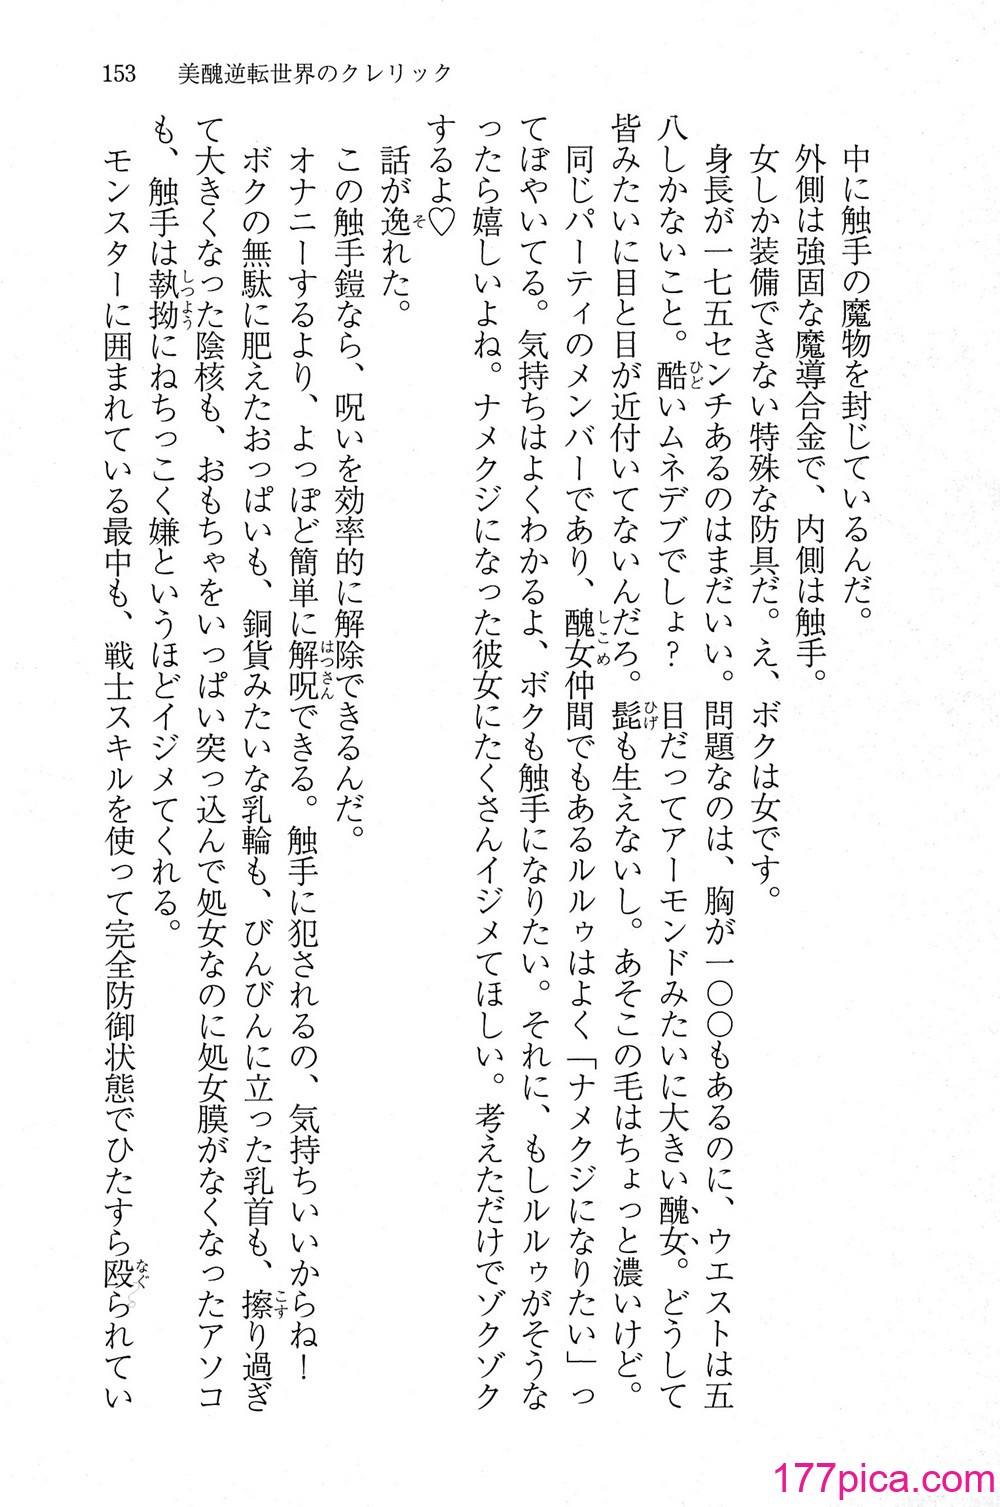 153 美醜逆転世界のクレリック
中に触手の魔物を封じているんだ。
外側は強固な魔導合金で、内側は触手。
女しか装備できない特殊な防具だ。え、ボクは女です。
身長が一七五センチあるのはまだいい。問題なのは、胸が一〇〇もあるのに、ウエストは五
八しかないこと。酷いムネデブでしょ？　目だってアーモンドみたいに大きい醜女。どうして
皆みたいに目と目が近付いてないんだろ。髭も生えないし。あそこの毛はちょっと濃いけど。
同じパーティのメンバーであり、醜女仲間でもあるルルゥはよく「ナメクジになりたい」っ
てぼやいてる。気持ちはよくわかるよ、ボクも触手になりたい。それに、もしルルゥがそうな
ったら嬉しいよね。ナメクジになった彼女にたくさんイジメてほしい。考えただけでゾクゾク
するよ♡
話が逸れた。
この触手鎧なら、呪いを効率的に解除できるんだ。
オナニーするより、よっぽど簡単に解呪できる。触手に犯されるの、気持ちいいからね！
ボクの無駄に肥えたおっぱいも、銅貨みたいな乳輪も、びんびんに立った乳首も、擦り過ぎ
て大きくなった陰核も、おもちゃをいっぱい突っ込んで処女なのに処女膜がなくなったアソコ
も、触手は執拗にねちっこく嫌というほどイジメてくれる。
モンスターに囲まれている最中も、戦士スキルを使って完全防御状態でひたすら殴られてい
177pica.com